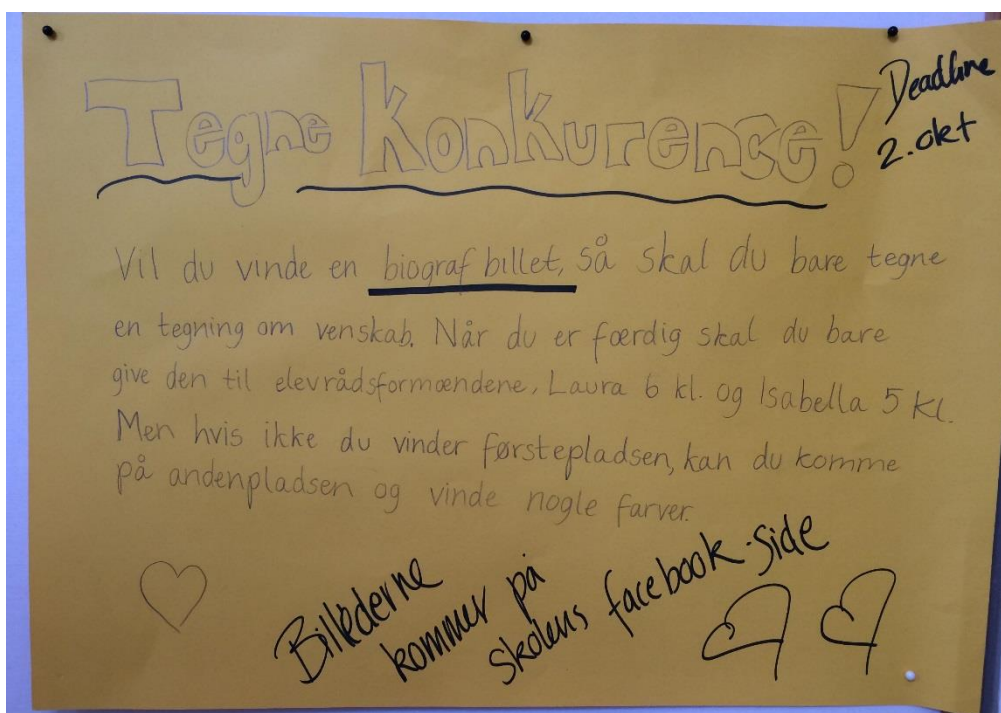 Tegne Konkurence!
Deadline
2. okt
Vil du vinde en biograf billet, så skal du bare tegne
en tegning om venskab. Når du er færdig skal du bare
give den til elevrådsformændene, Laura 6 kl. og Isabella 5 kl.
Men hvis ikke du vinder førstepladsen, kan du komme
på andenpladsen og vinde nogle farver.
Billederne
kommer på
skolens facebook-side